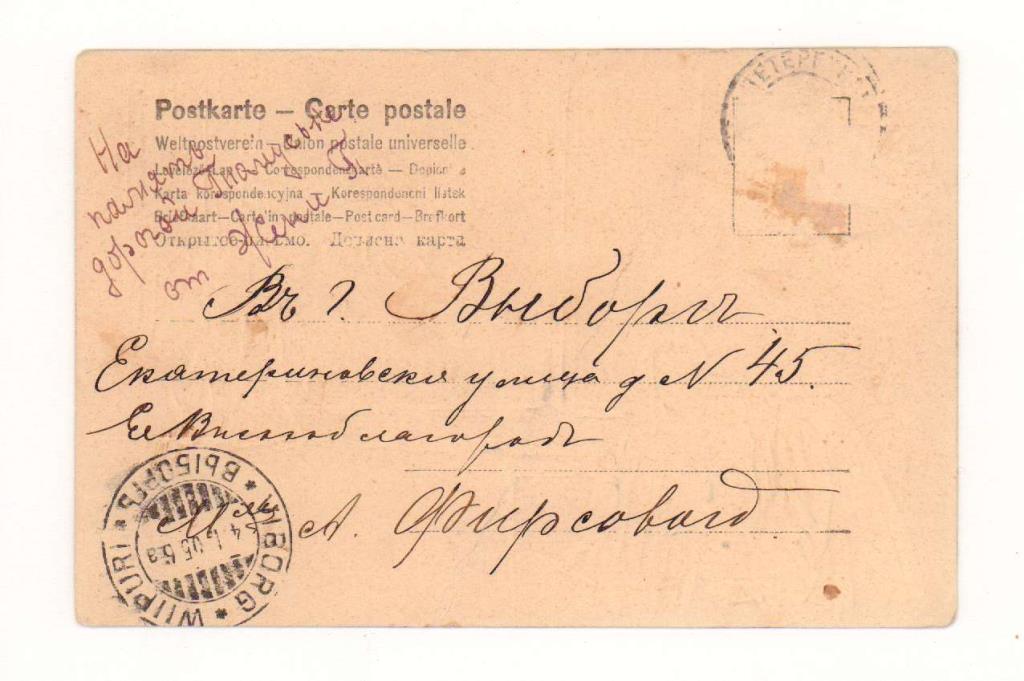 Postkarte — Carte postale
Weltpostverein — Union postale universelle
Levelező-Lap — Correspondenzkarte — Dopisnice
Karta korespondencyjna — Korespondencni listek
Briefkaart — Carte in postale — Post card — Brefkort
Открытое письмо. Дописна карта
На
память
дорогой
от Жени Г.
ПЕТЕРГ
Въ г. Выборгъ
Екатериновская улица д N 45.
Ея Высокоблагородію
А. Фирсовой
WIBORG * WIIPURI * ВЫБОРГЪ *